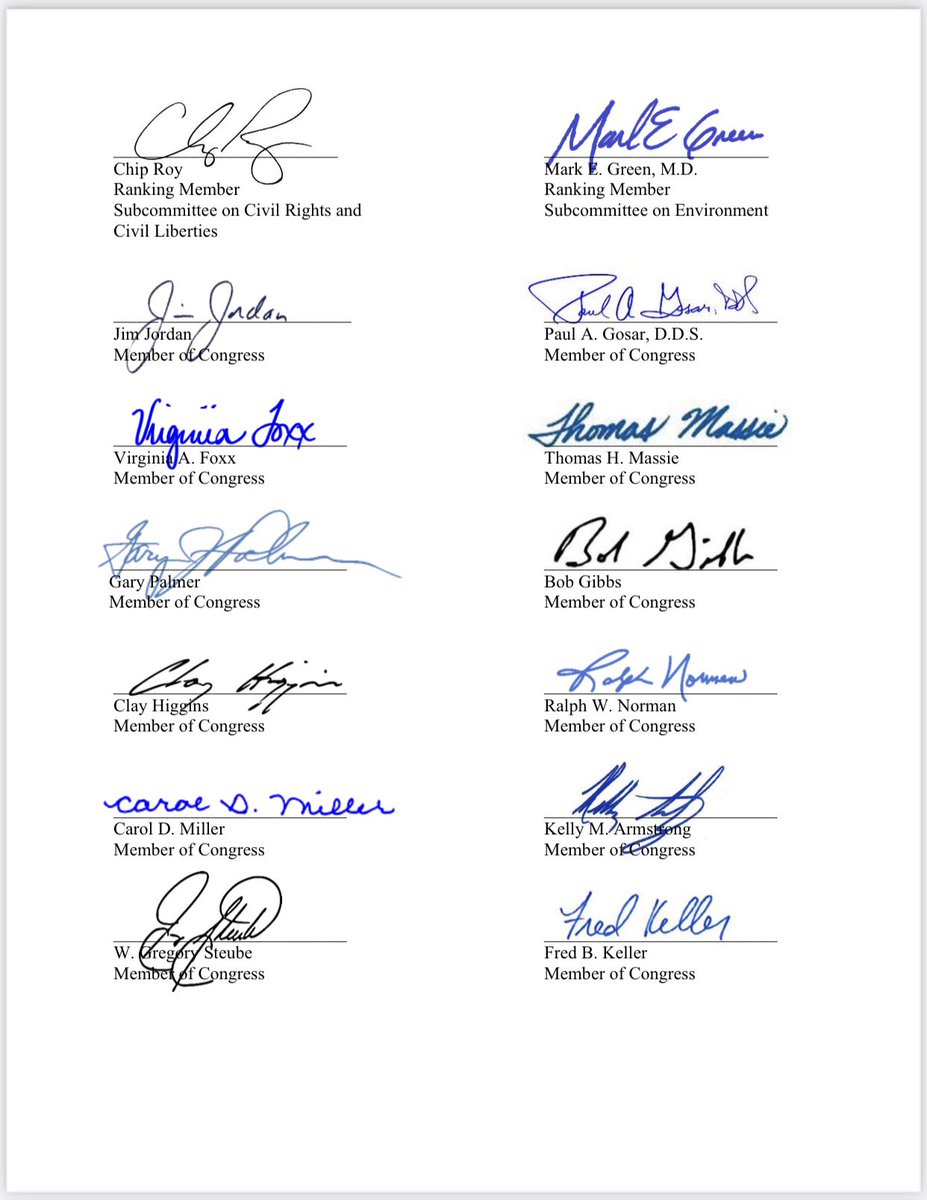 Chip Roy
Chip Roy
Ranking Member
Subcommittee on Civil Rights and
Civil Liberties
Mark E Green
Mark E. Green, M.D.
Ranking Member
Subcommittee on Environment
Jim Jordan
Jim Jordan
Member of Congress
Paul A Gosar, DDS
Paul A. Gosar, D.D.S.
Member of Congress
Virginia Foxx
Virginia A. Foxx
Member of Congress
Thomas Massie
Thomas H. Massie
Member of Congress
Gary Palmer
Gary Palmer
Member of Congress
Bob Gibbs
Bob Gibbs
Member of Congress
Clay Higgins
Clay Higgins
Member of Congress
Ralph Norman
Ralph W. Norman
Member of Congress
Carol D. Miller
Carol D. Miller
Member of Congress
Kelly M. Armstrong
Member of Congress
Greg Steube
W. Gregory Steube
Member of Congress
Fred Keller
Fred B. Keller
Member of Congress